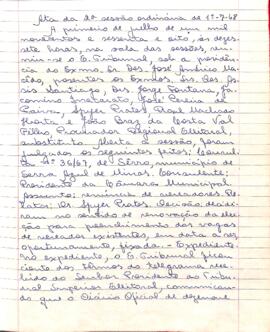 Ata da 1ª sessão ordinária de 1º-7-68
A primeiro de julho de um mil
novecentos e sessenta e oito, às dezes-
sete horas, na sala das sessões, reú-
niu-se o E. Tribunal, sob a presidência
do Exmo. Sr. Des. José Américo Ma-
cêdo, presentes os Exmos. Srs. Des. As-
sis Santiago, Drs. Jorge Fontana, Ja-
comino José Pereira de
Paiva, Spyer Prates,
Horta e João Braz da Costa Val
Filho, Procurador Regional Eleitoral,
substituto. Aberta a sessão, foram
julgados os seguintes feitos: Consul-
ta nº 36/67, de Sêrro, município de
Serra Azul de Minas. Consulente:
Presidente da Câmara Municipal.
Assunto: renúncia de vereadores. Re-
lator: Dr. Spyer Prates. Decisão: decidi-
ram no sentido de renovação da elei-
ção para preenchimento das vagas
de vereador existentes, em data a ser
oportunamente, fixada. - Expediente:
No expediente, o E. Tribunal ficou
ciente dos têrmos do telegrama rece-
bido do Senhor Presidente do Tribu-
nal Superior Eleitoral, comunican-
do que o Diário Oficial de dezenove